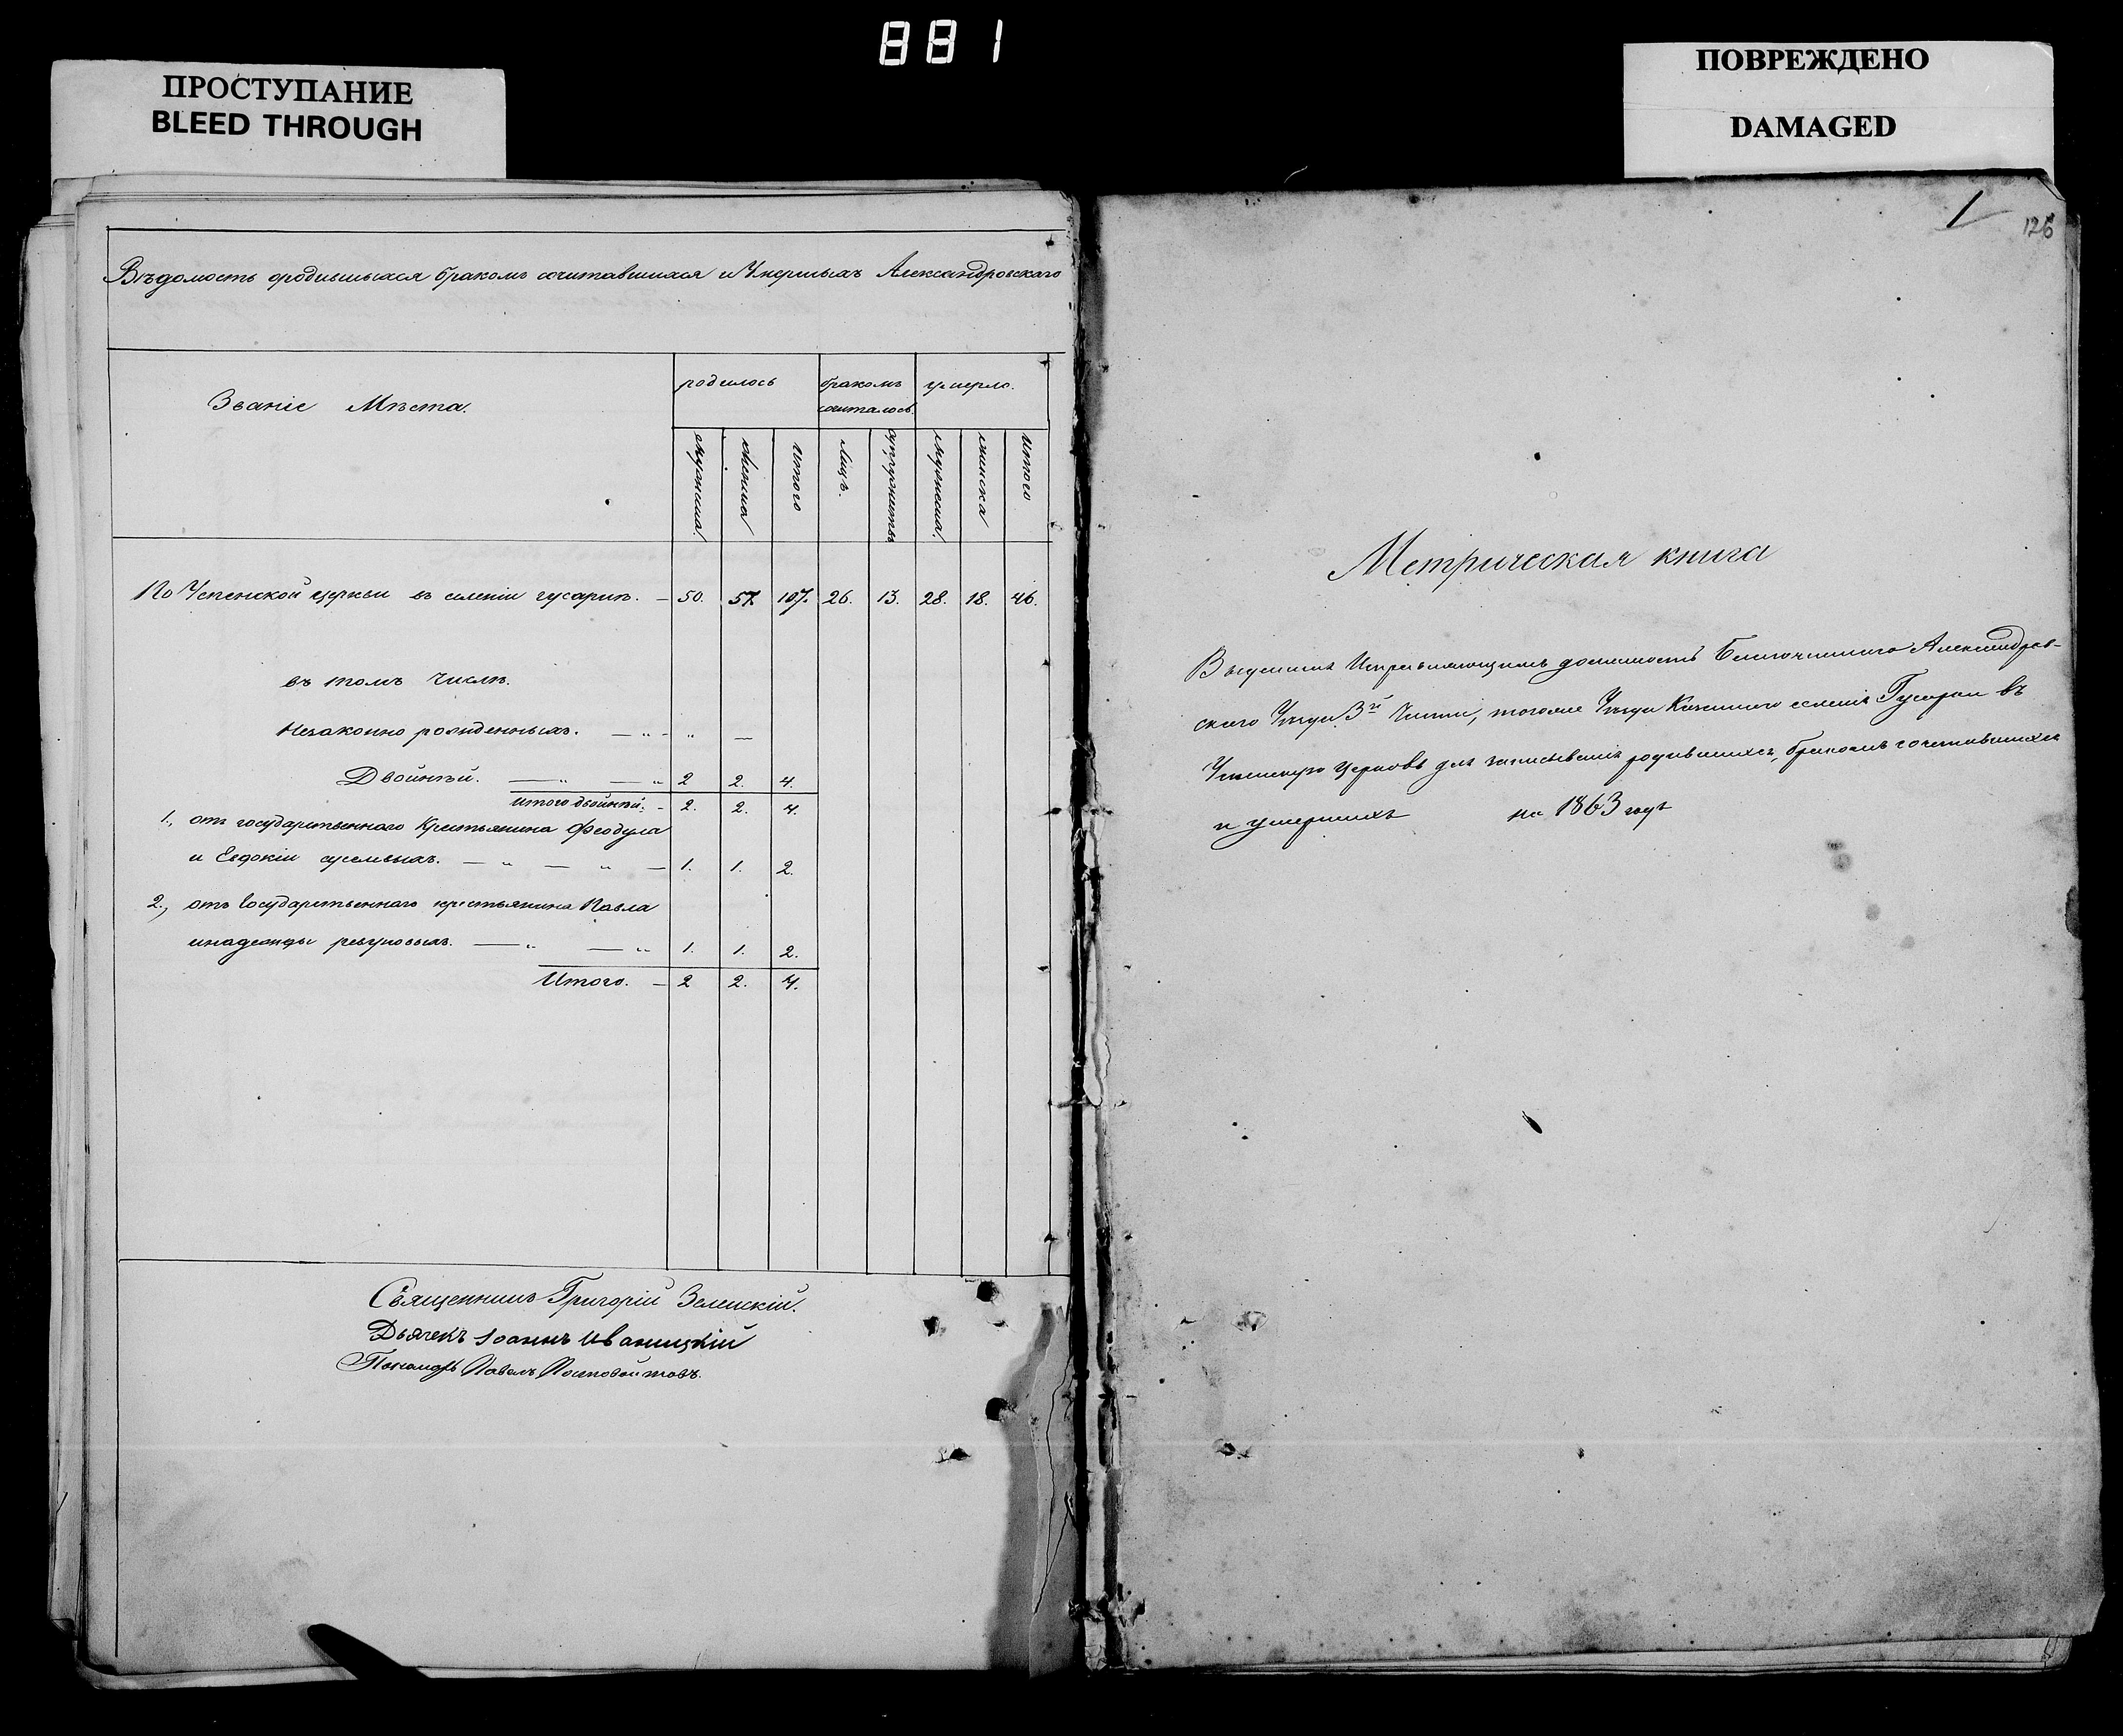 881
ПРОСТУПАНИЕ
BLEED THROUGH
ПОВРЕЖДЕНО
DAMAGED
Вѣдомость ородившыхся бракомъ сочитавшихся и Умершыхъ Александровскаго
Званіе Мѣста.
родилось
бракомъ сочиталось.
умерло.
мужеска.
женска
итого
Лицъ.
супружитвъ
мужеска.
женска
итого
По Успенской церкви въ селеніи гусарцѣ. — 50. 57. 107. 26. 13. 28. 18. 46.
въ томъ числѣ.
Незаконно рожденныхъ. — „ - „ —
Двойнѣй. — „ — „ 2 2. 4.
итого двойнѣй. - 2. 2. 4.
1., отъ государственнаго Крестьянина Феодула
и Евдокіи — „ — „ — 1. 1. 2.
2., отъ государственнаго крестьянина Павла
инадежды — „ — „ 1. 1. 2.
Итого. — 2 2. 4.
Священникъ Григорій Зеленскій.
Дьячекъ Іоаннъ Иваницкій
Пономарь Павелъ
1
126
Метрическая книга
Исправляющимъ должность Благочиннаго Александров-
скаго Уѣзда 3й Части, тогоже Уѣзда Казеннаго селенія Гусарки въ
Успенскую Церковь для записыванія родившихся, бракомъ сочетавшихся
и умершихъ на 1863 годъ